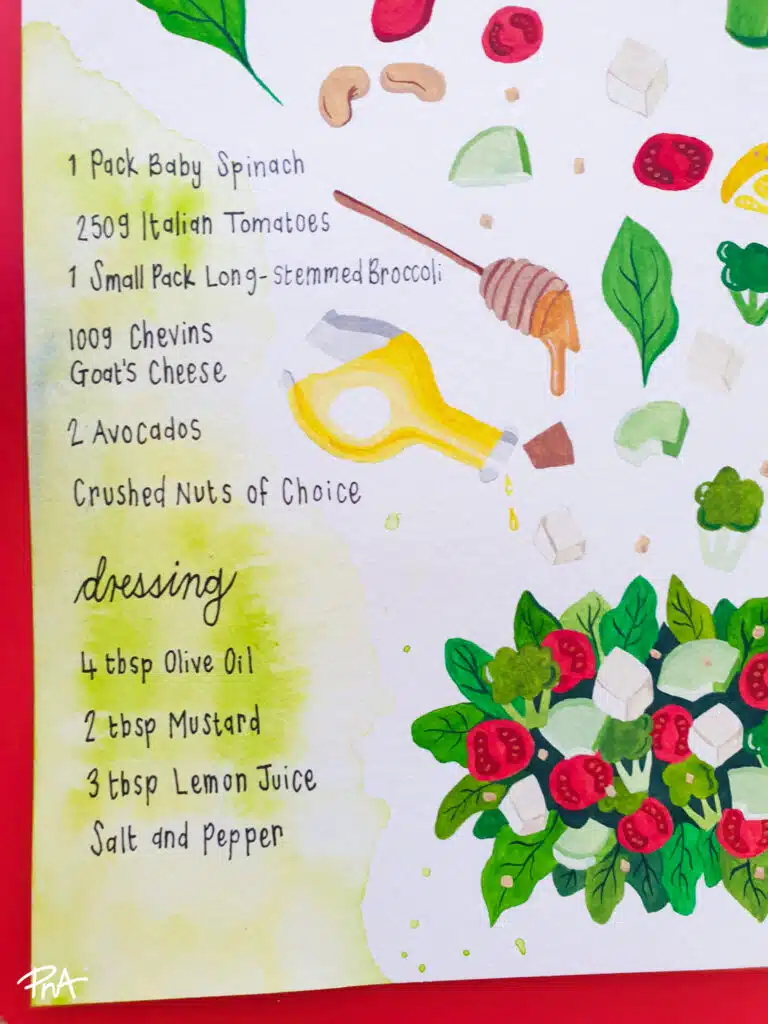 1 Pack Baby Spinach
250g Italian Tomatoes
1 Small Pack Long-stemmed Broccoli
100g Chevins
Goat's Cheese
2 Avocados
Crushed Nuts of Choice
dressing
4 tbsp Olive Oil
2 tbsp Mustard
3 tbsp Lemon Juice
Salt and Pepper
PnA